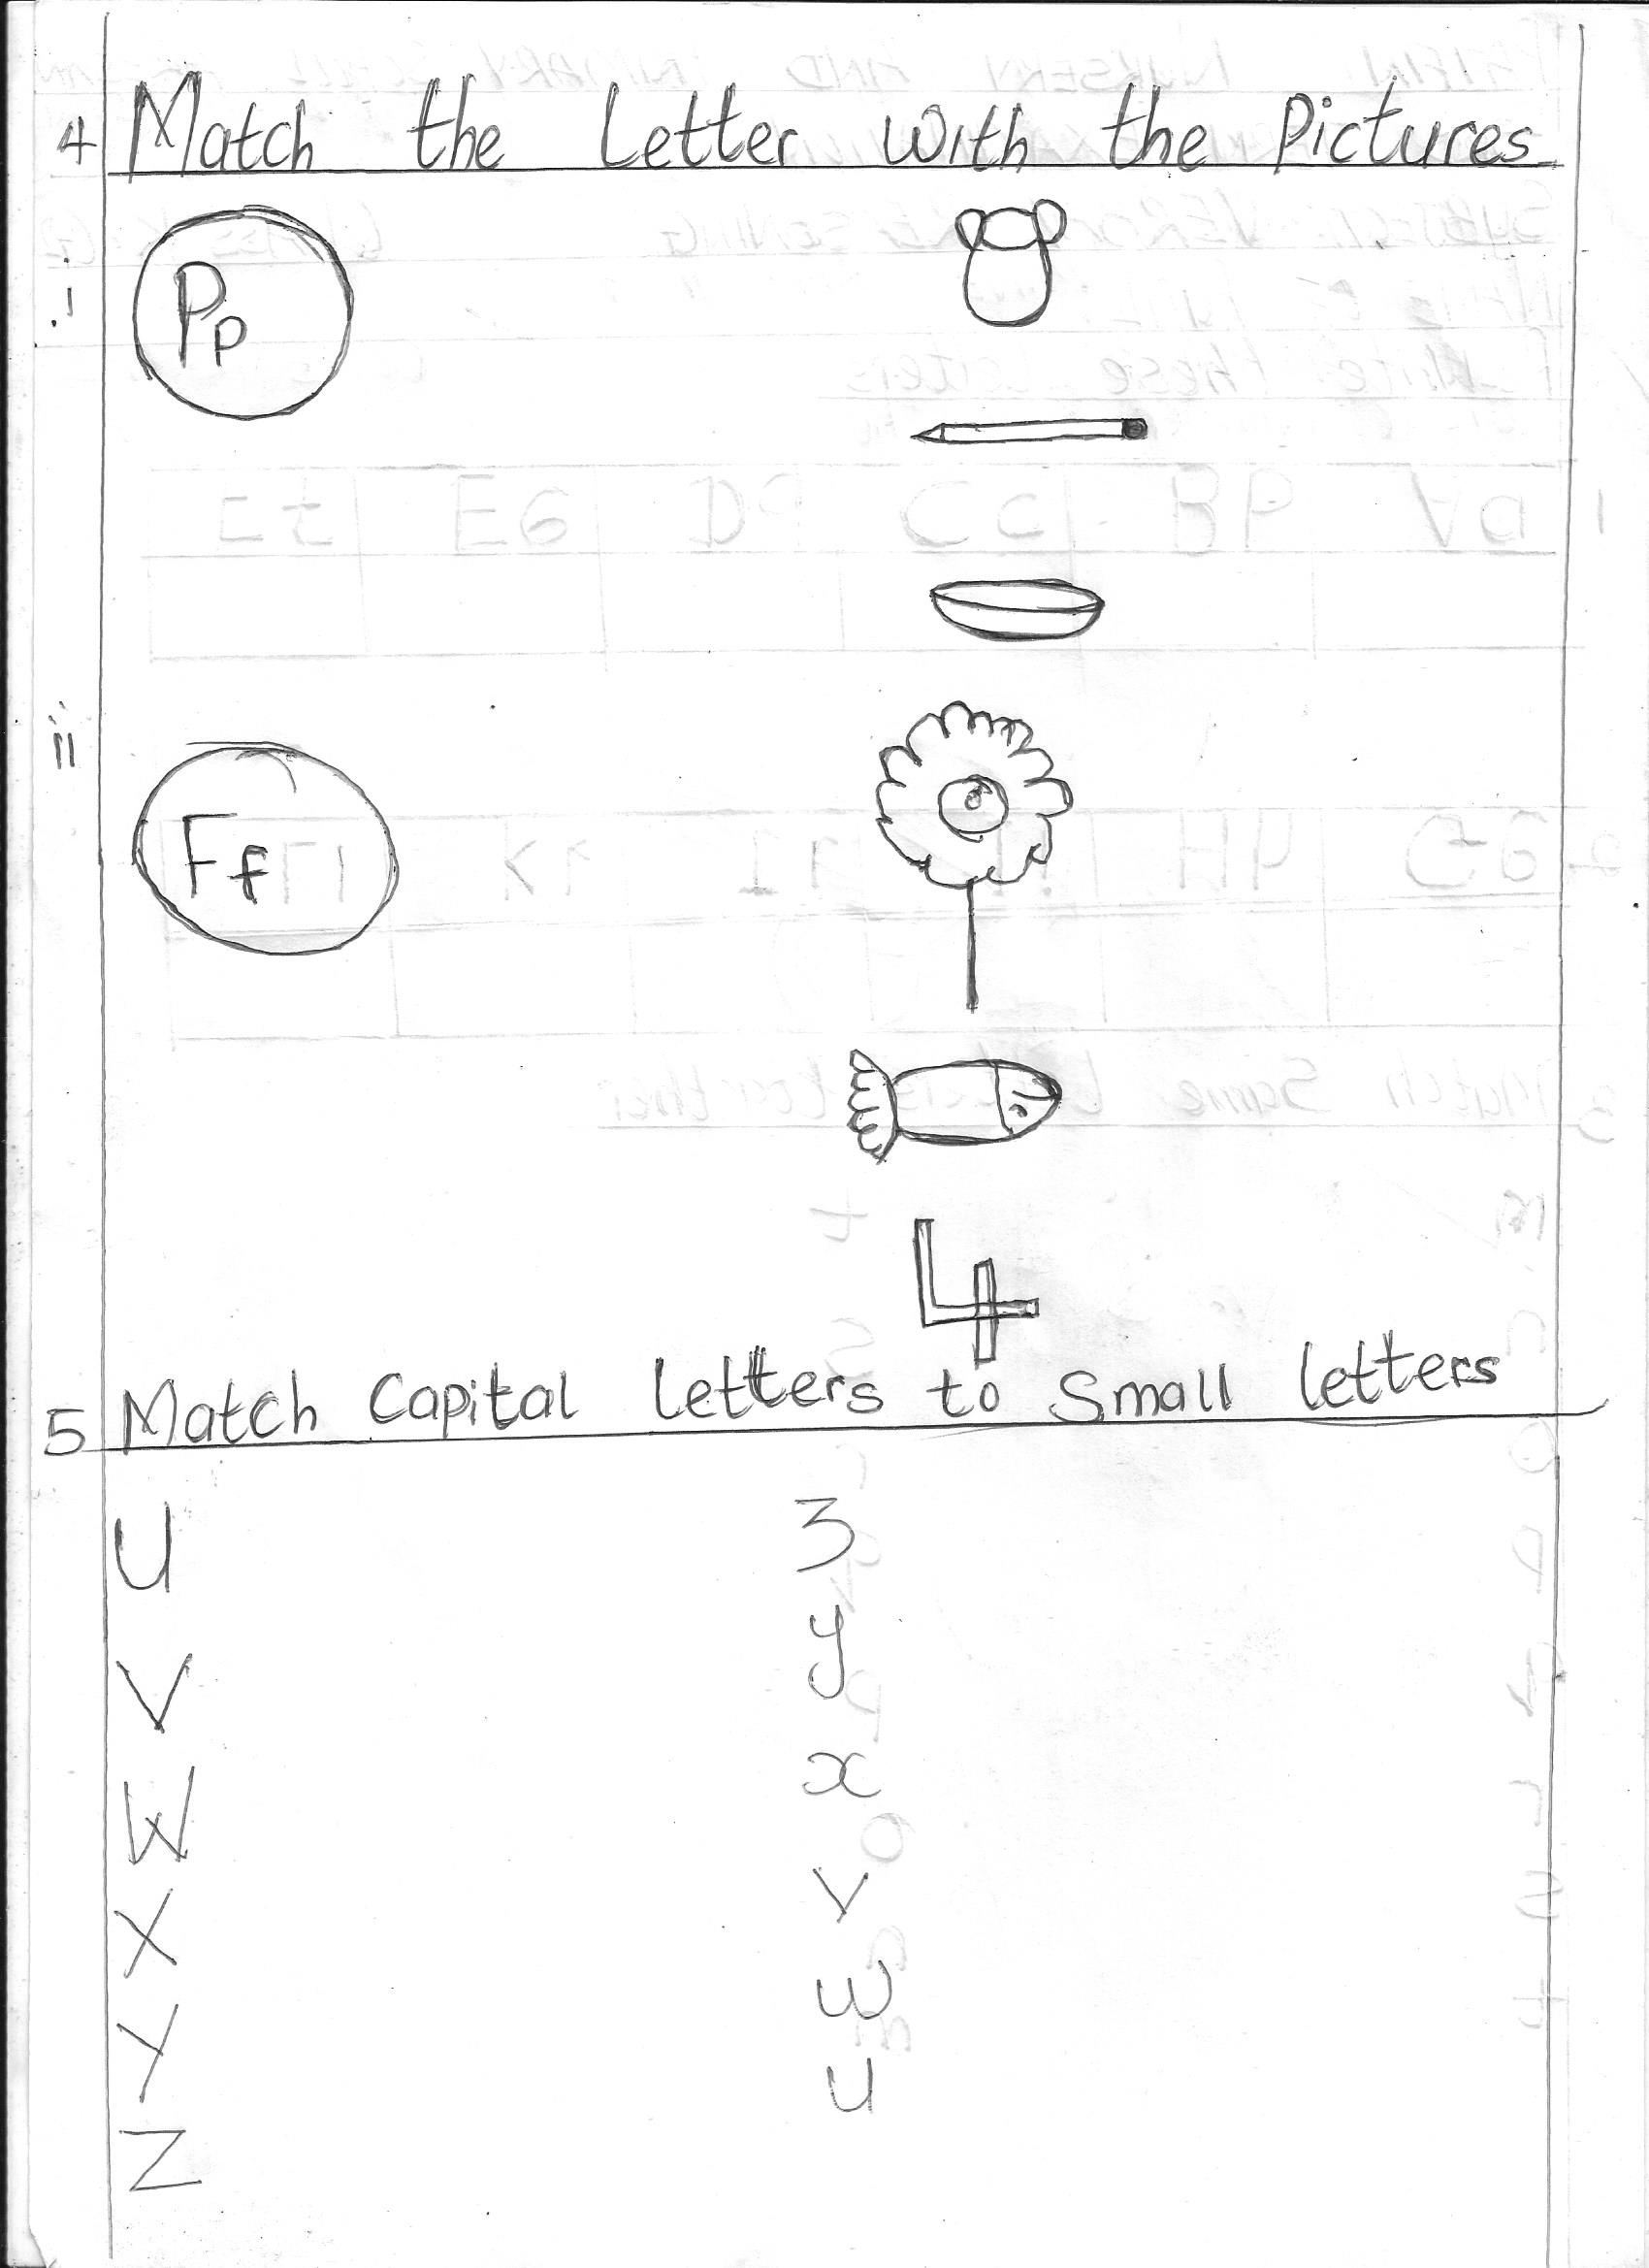 4 Match the Letter with the Pictures
i
Pp
ii
Ff
4
5 Match Capital letters to Small letters
U 3
V y
W x
X v
Y w
Z u